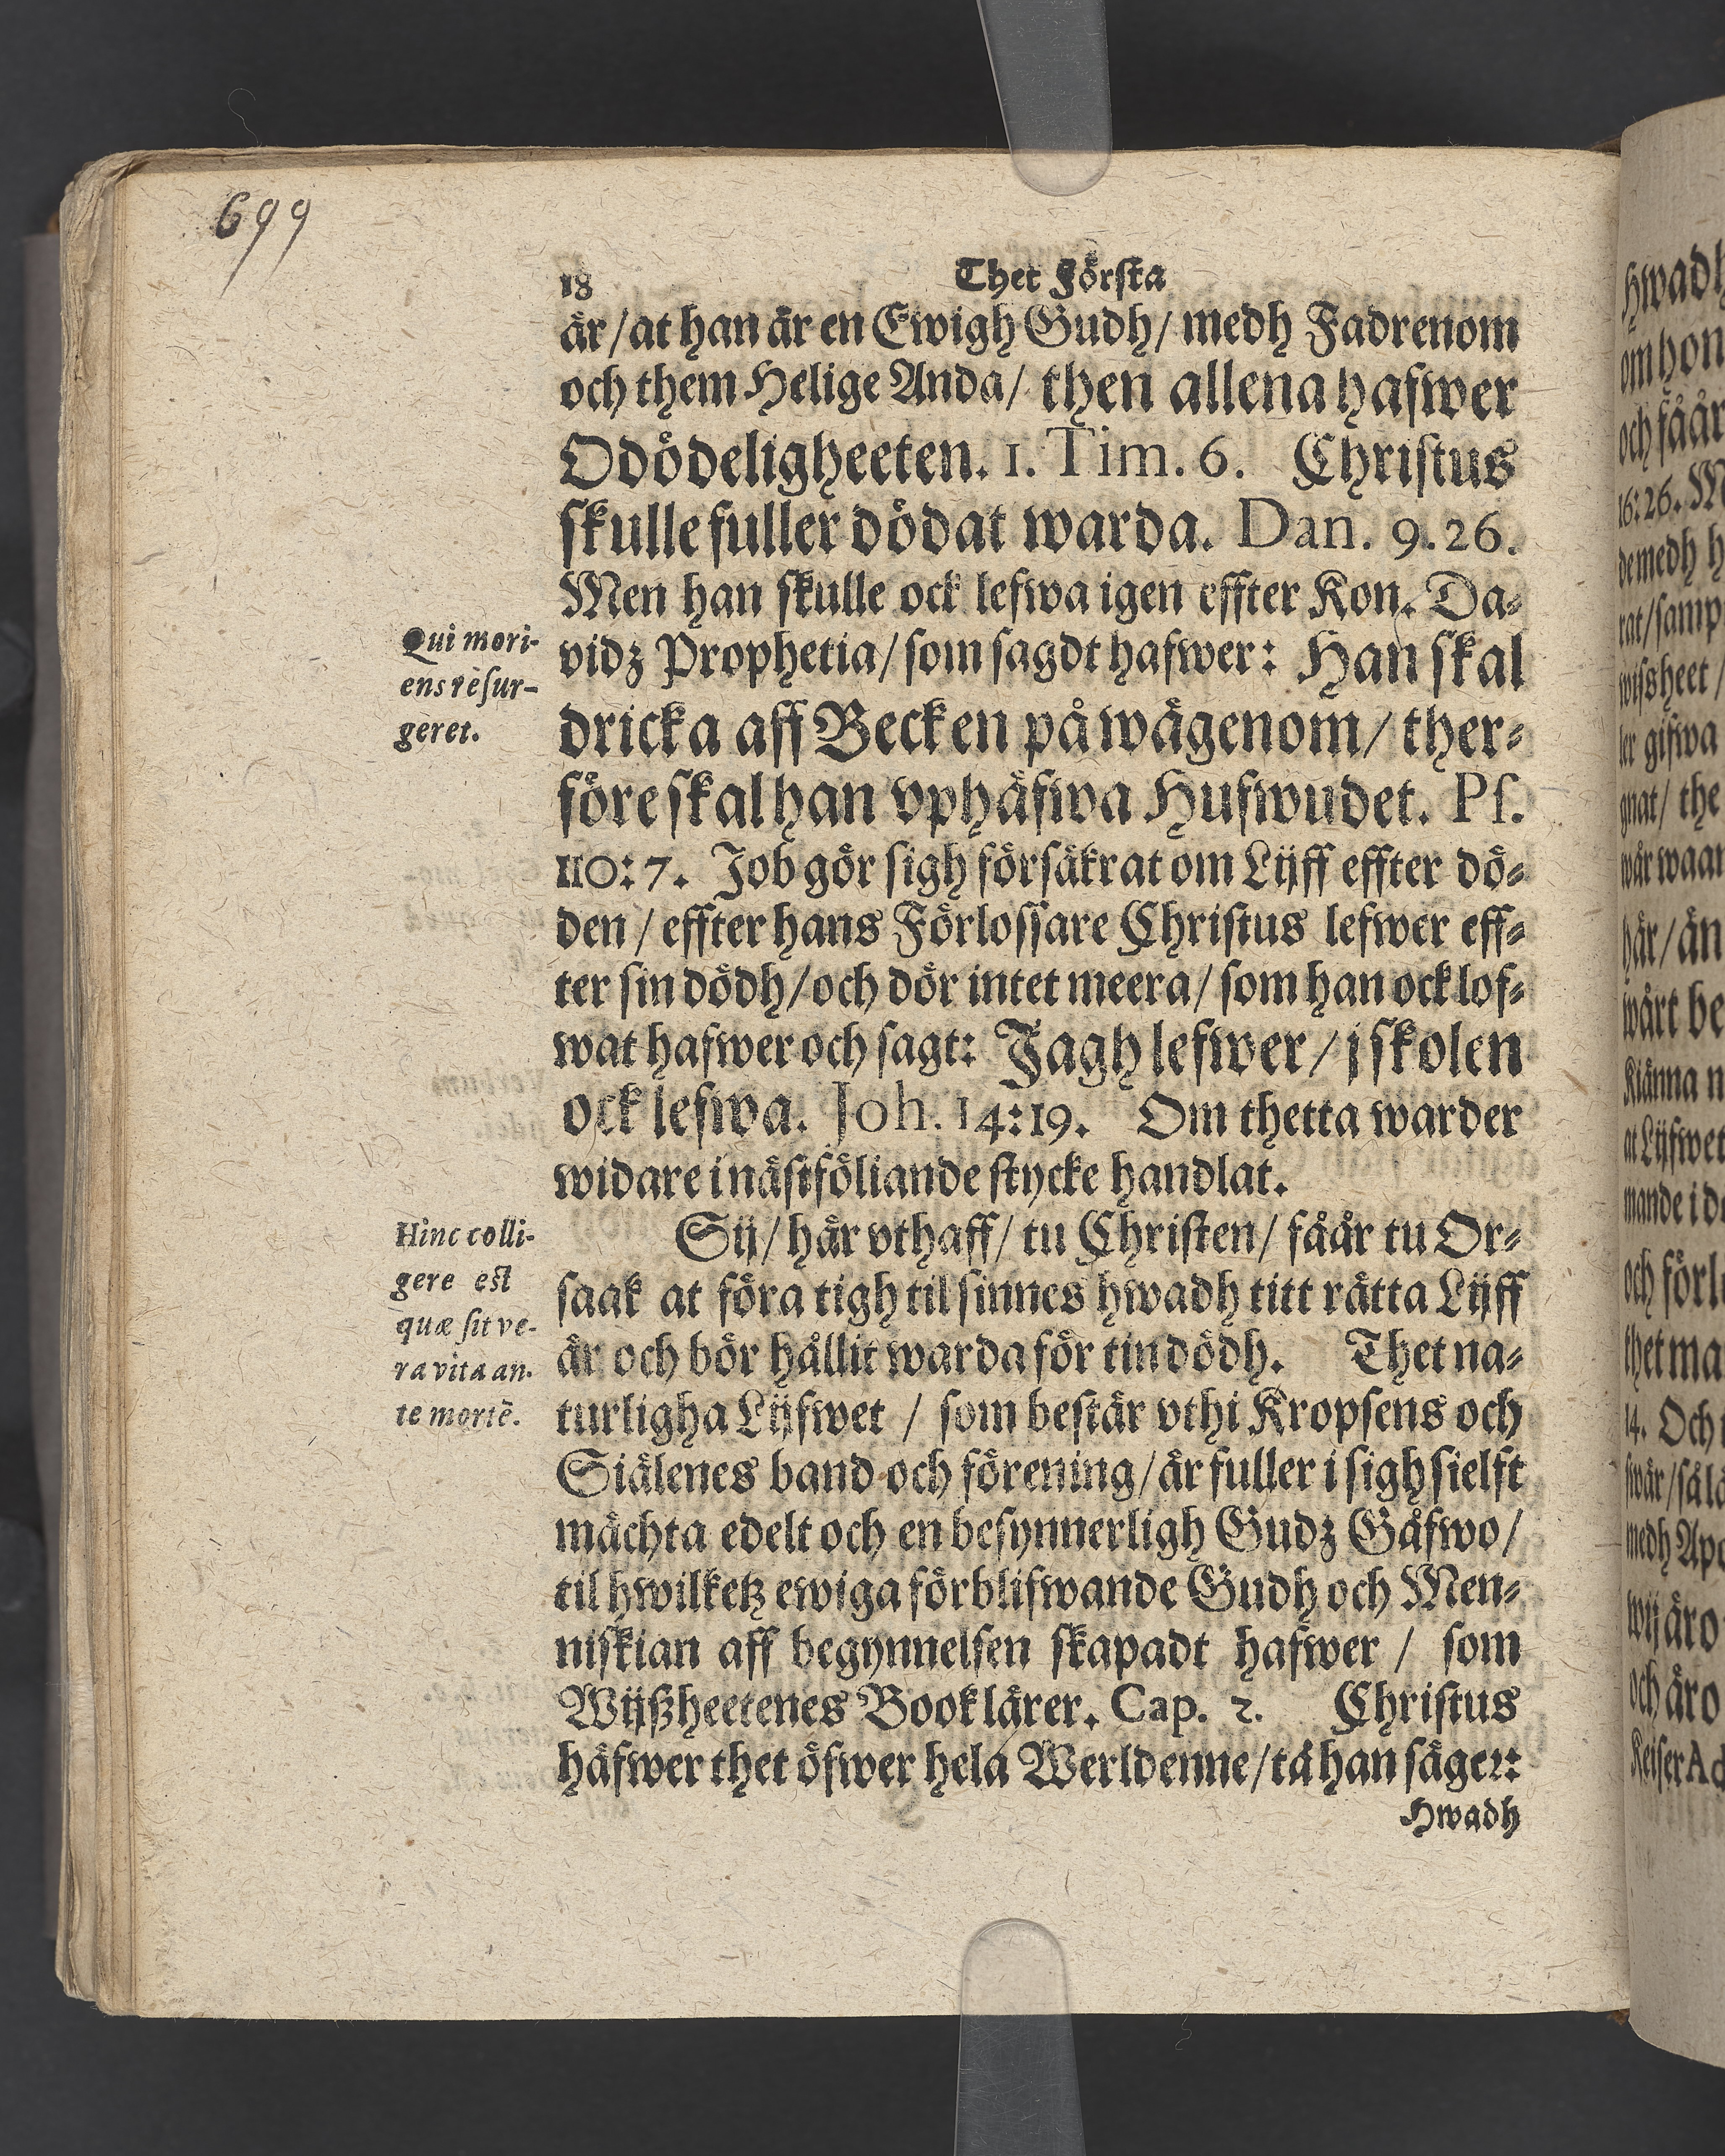 699
18 Thet Första
är/at han är en Ewigh Gudh/ medh Fadrenom
och them Helige Anda/ then allena hafwer
Odödeligheeten. 1. Tim. 6. Christus
skulle fuller dödat warda. Dan. 9. 26.
Men han skulle ock lefwa igen effter Kon. Da-
Qui mori-
ens resur-
geret.
vidz Prophetia/ som sagdt hafwer: Han skal
dricka aff Becken på wägenom/ ther-
före skal han vphäfwa Hufwudet. Ps.
110:7. Job gör sigh försäkrat om Lijff effter dö-
den/ effter hans Förlossare Christus lefwer eff-
ter sin dödh/och dör intet meera/ som han ock lof-
wat hafwer och sagt: Jagh lefwer/ j skolen
ock lefwa. Joh. 14:19. Om thetta warder
widare i nästföliande stycke handlat.
Hinc colli-
gere est
quæ sit ve-
ra vita an-
te mortē.
Sij/ här vthaff/ tu Christen/ fåår tu Or-
saak at föra tigh til sinnes hwadh titt rätta Lijff
är och bör hållit warda för tin dödh. Thet na-
turligha Lijfwet / som bestär vthi Kropsens och
Siälenes band och förening/ är fuller i sigh sielft
mächta edelt och en besynnerligh Gudz Gåfwo/
til hwilketz ewiga förblifwande Gudh och Men-
niskian aff begynnelsen skapadt hafwer / som
Wijßheetenes Book lärer. Cap. 2. Christus
häfwer thet öfwer hela Werldenne/tå han säger:
Hwadh